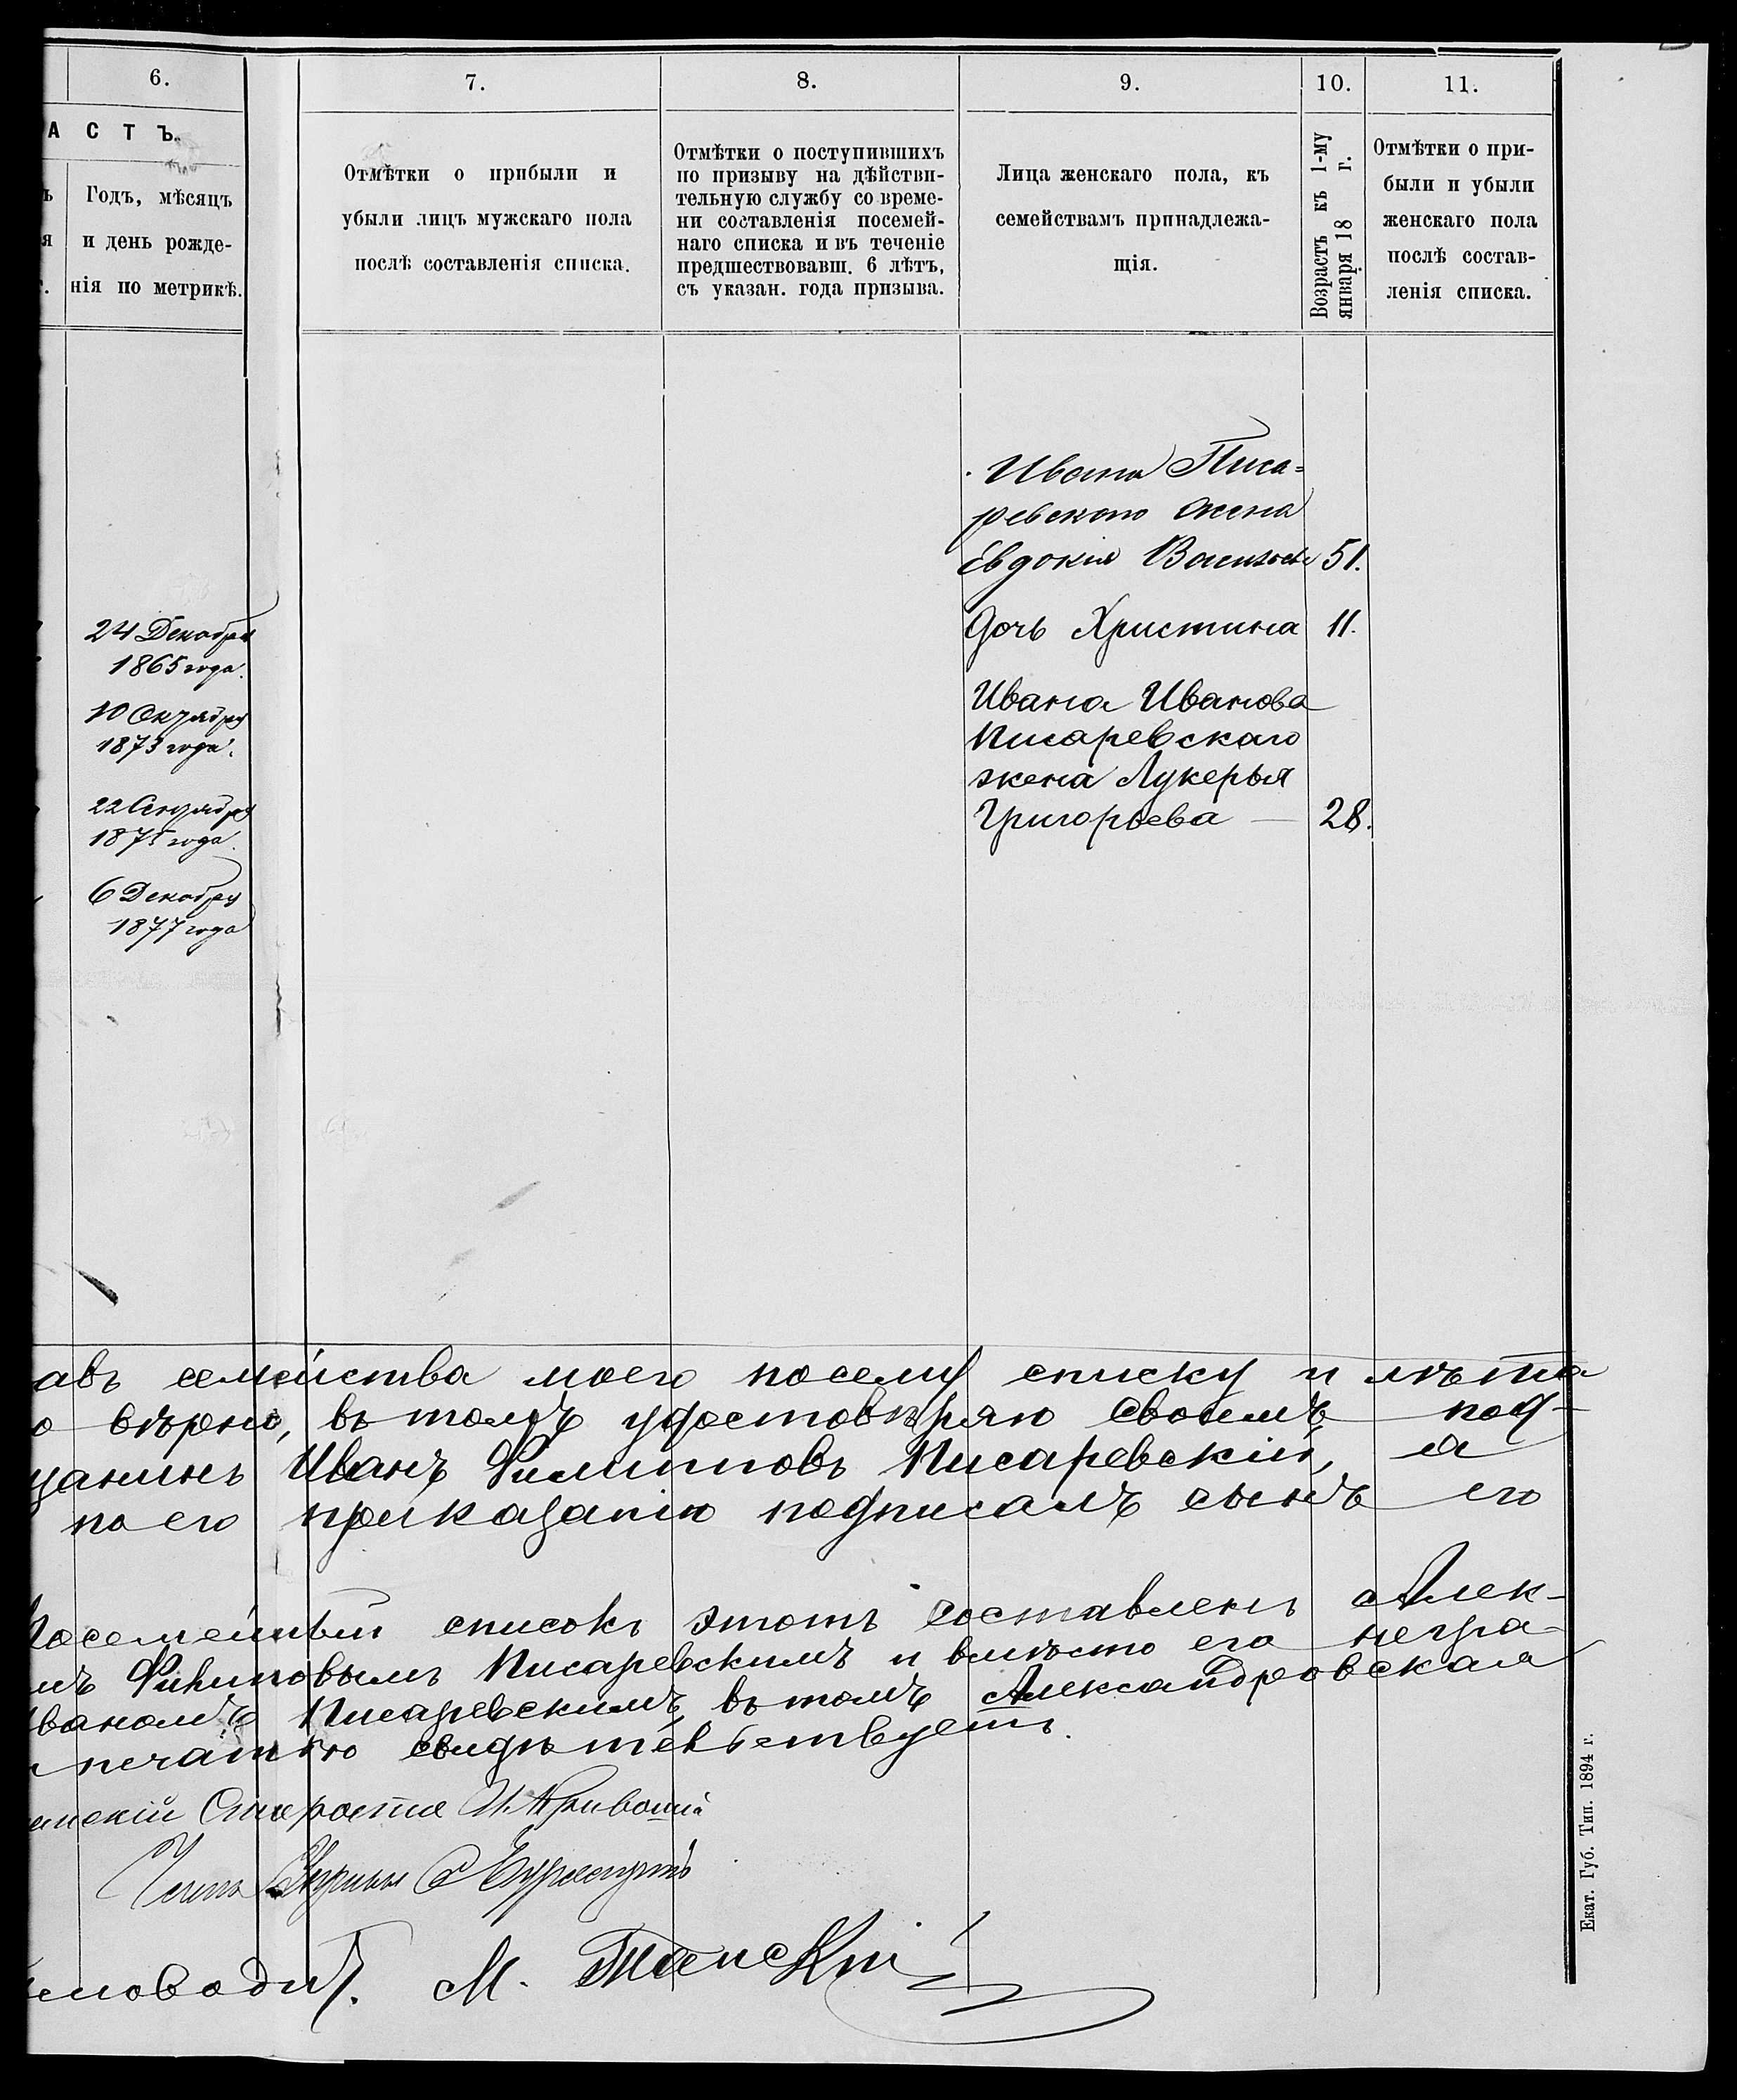 6.
7.
8.
9.
10.
11.
АСТЪ.
Годъ, мѣсяцъ
и день рожде-
нія по метрикѣ.
Отмѣтки о прибыли и
убыли лицъ мужскаго пола
послѣ составленія списка.
Отмѣтки о поступившихъ
по призыву на дѣйстви-
тельную службу со време-
ни составленія посемей-
наго списка и въ теченіе
предшествовавш. 6 лѣтъ,
съ указан. года призыва.
Лица женскаго пола, къ
семействамъ принадлежа-
щія.
Возрастъ къ 1-му
января 18 г.
Отмѣтки о при-
были и убыли
женскаго пола
послѣ состав-
ленія списка.
Ивана Писа-
ревскаго жена
Евдокия 51.
дочь Христина 11.
Ивана Иванова
Писаревскаго
жена Лукерья
Григорьева — 28.
24 Декабря
1865 года.
10 Октября
1873 года.
22
года.
6 Декабря
1877 года
авъ семейства моего посему списку и лѣта
о вѣрно, въ томъ удостовѣряю своимъ под-
щанинъ Иванъ Филипповъ Писаревскій, а
по его приказанію подписалъ сынъ его
Посемейный списокъ этотъ составленъ Алек-
мъ Писаревскимъ и вмѣсто его негра-
ваномъ Писаревскимъ, въ томъ Александровская
печатью свидѣтельствуетъ.
Староста
Управы
М.
Екат. Губ. Тип. 1894 г.